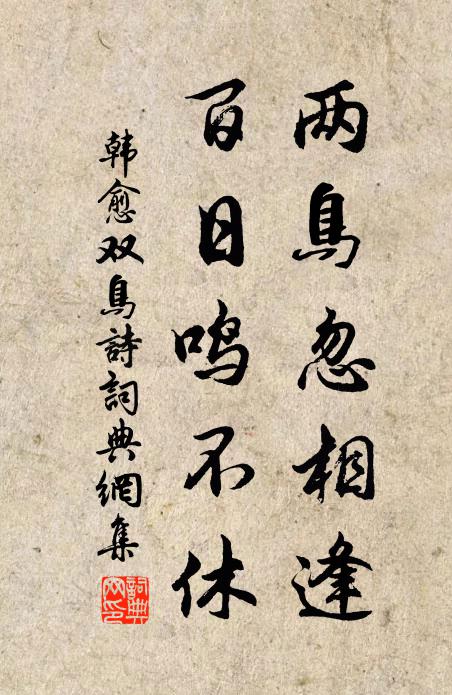 两鳥忽相逢
百日鸣不休
韩愈双鳥詩詞典網集
詞典网印